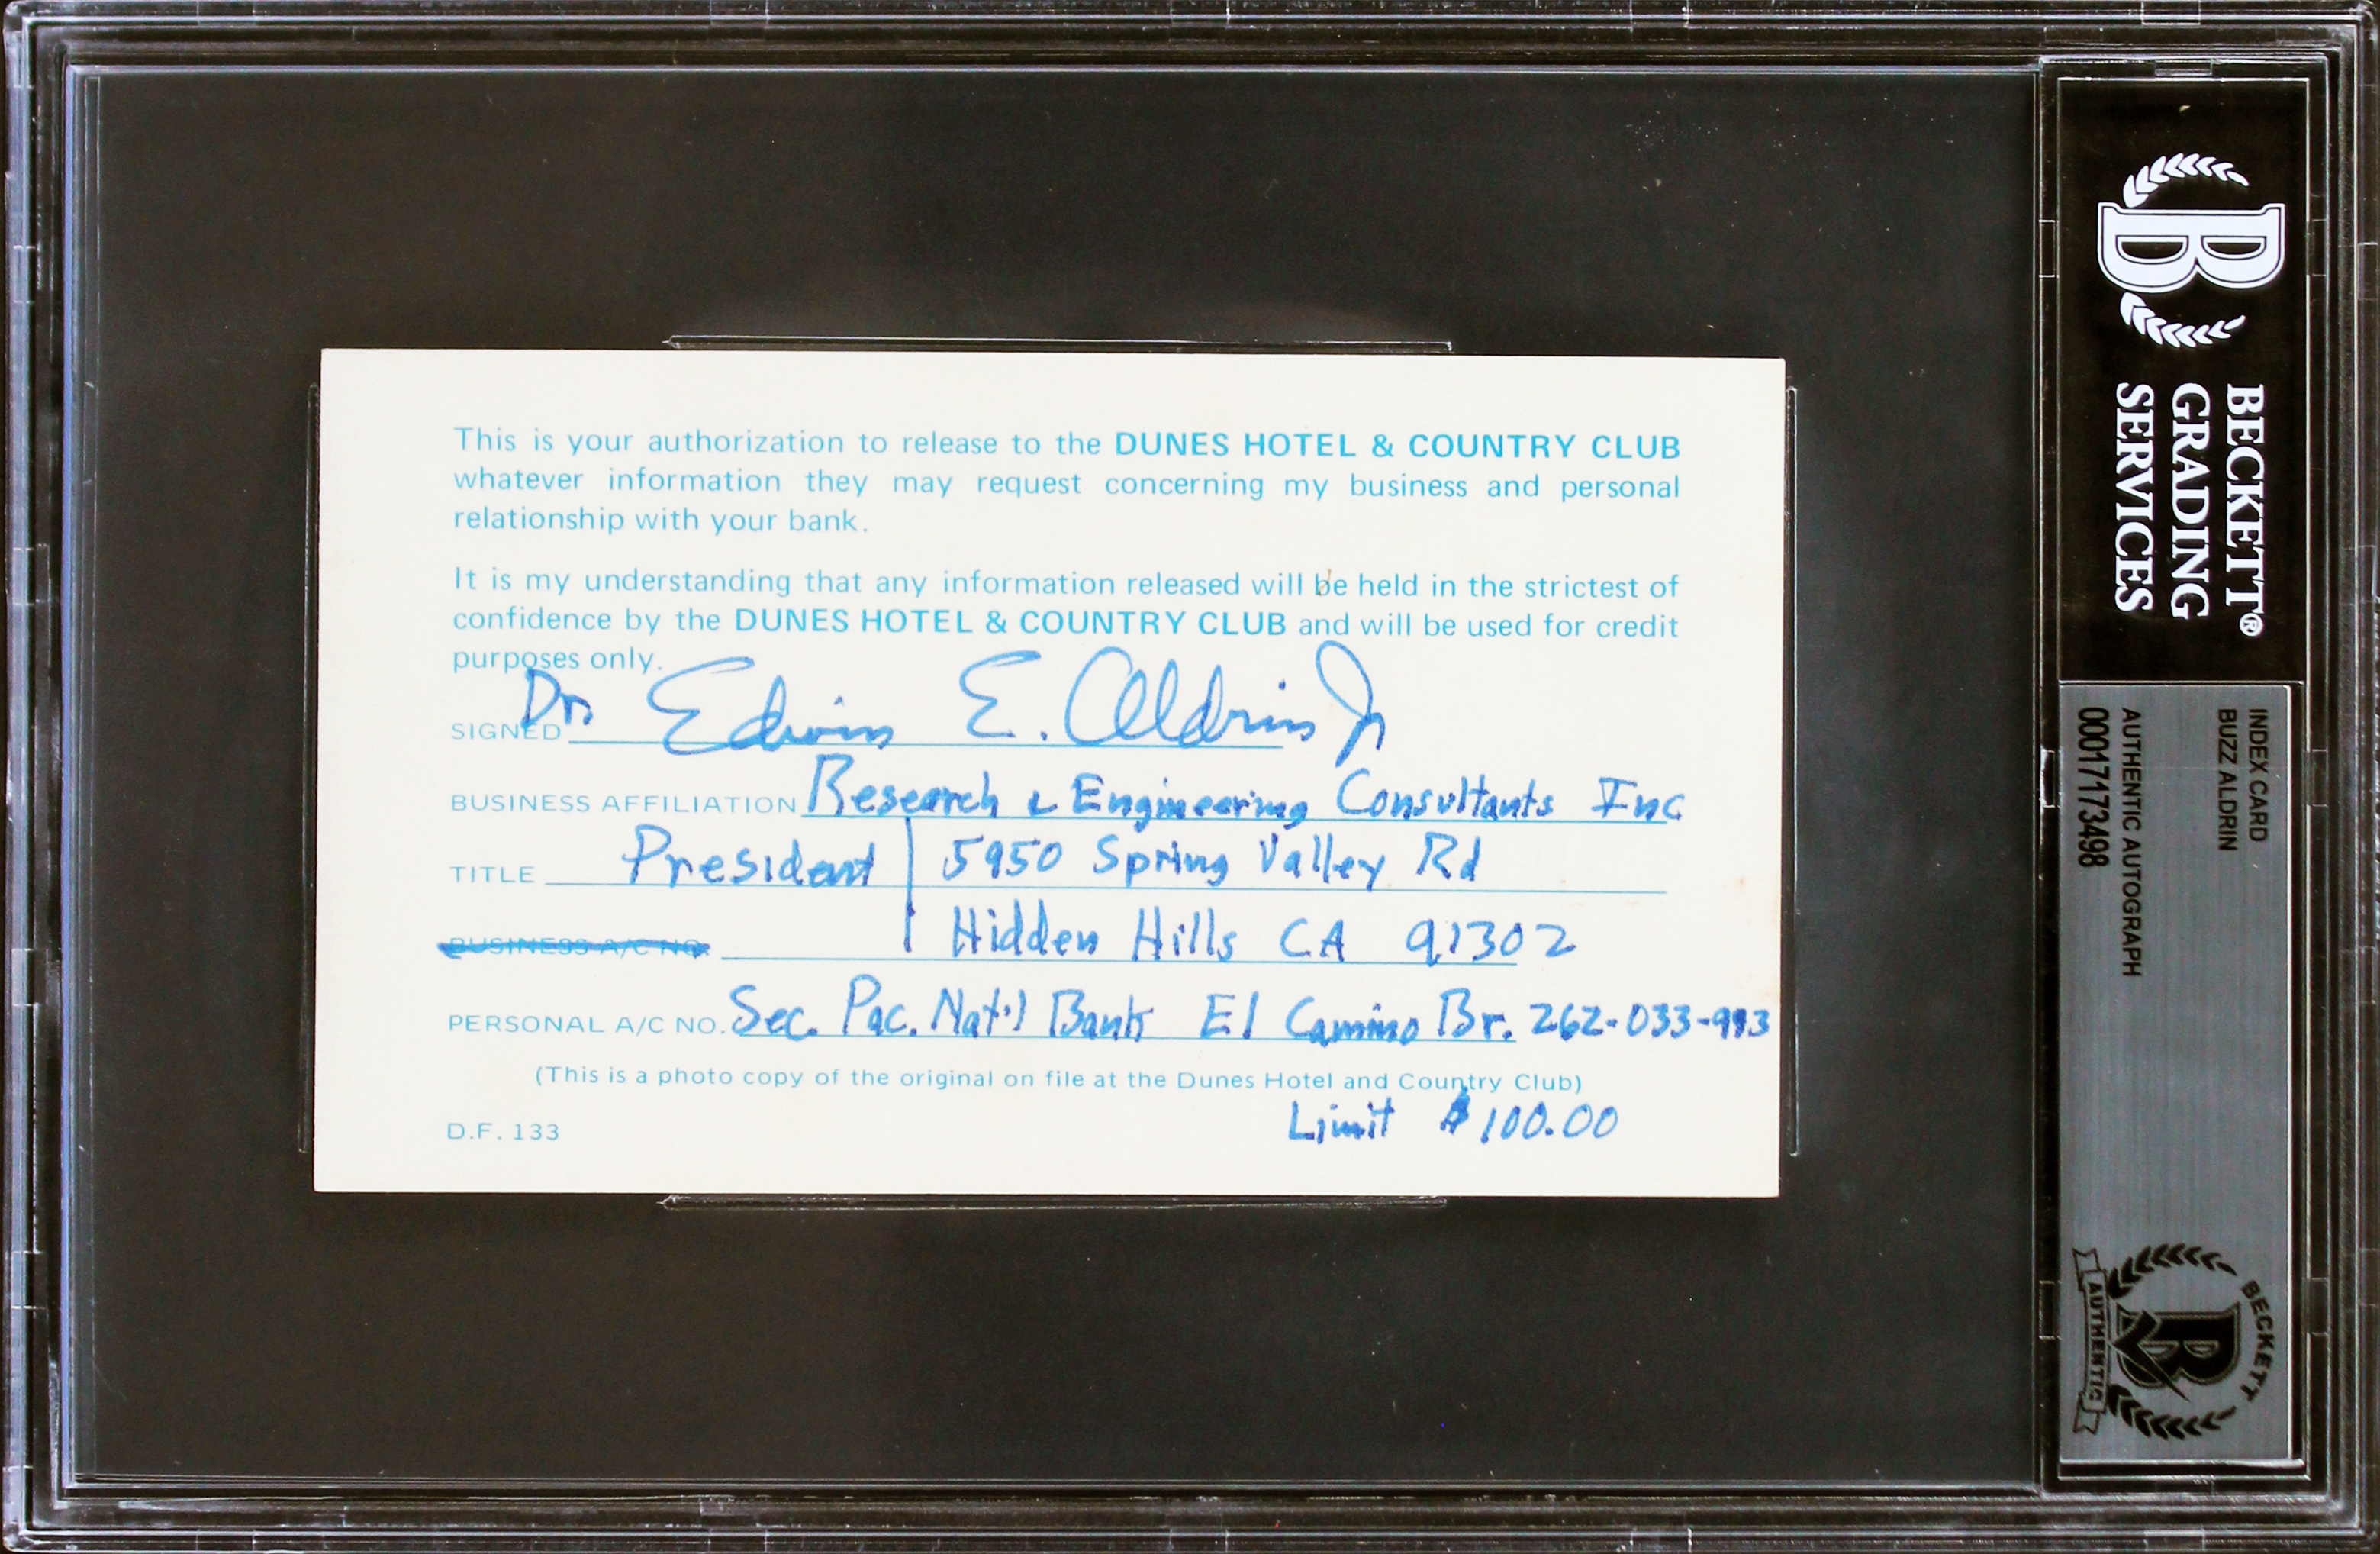 This is your authorization to release to the DUNES HOTEL & COUNTRY CLUB
whatever information they may request concerning my business and personal
relationship with your bank.
It is my understanding that any information released will be held in the strictest of
confidence by the DUNES HOTEL & COUNTRY CLUB and will be used for credit
purposes only.
SIGNED Dr Edwin E. Aldrin Jr
BUSINESS AFFILIATION Research & Engineering Consultants Inc
TITLE President | 5950 Spring Valley Rd
BUSINESS A/C NO. Hidden Hills CA 91302
PERSONAL A/C NO. Sec. Pac. Nat'l Bank El Camino Br. 262-033-993
(This is a photo copy of the original on file at the Dunes Hotel and Country Club)
Limit $100.00
D.F. 133
B
BECKETT®
GRADING
SERVICES
INDEX CARD
BUZZ ALDRIN
AUTHENTIC AUTOGRAPH
00017173498
BECKETT
B
AUTHENTIC